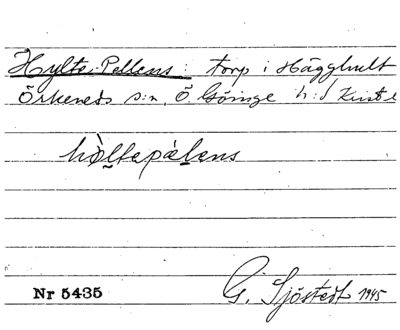 Hylte-Pellens: torp i Hägghult
Örkeneds s:n, Ö. Göinge h:d Krist l
hòltepàlens
Nr 5435 G. Sjöstedt 1945